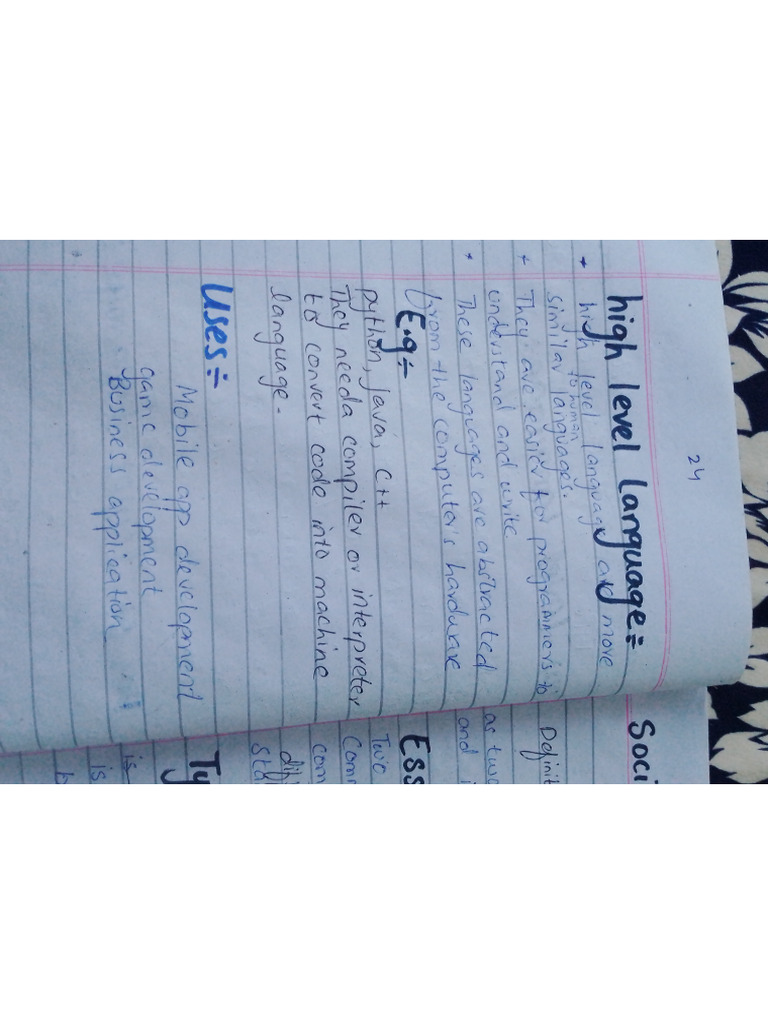 24
high level language:-
* high level language are more
to human
similar languages.
* They are easier for programmers to
understand and write
* These languages are abstracted
from the computer's hardware
E.g:-
python, java, C++
They need a compiler or interpreter
to convert code into machine
language.
Uses:-
Mobile app development
game development
Business application
Soci
Definit
as two
and i
Ess
Two
Comm
com
dif
Sta
Ty
is
is
b